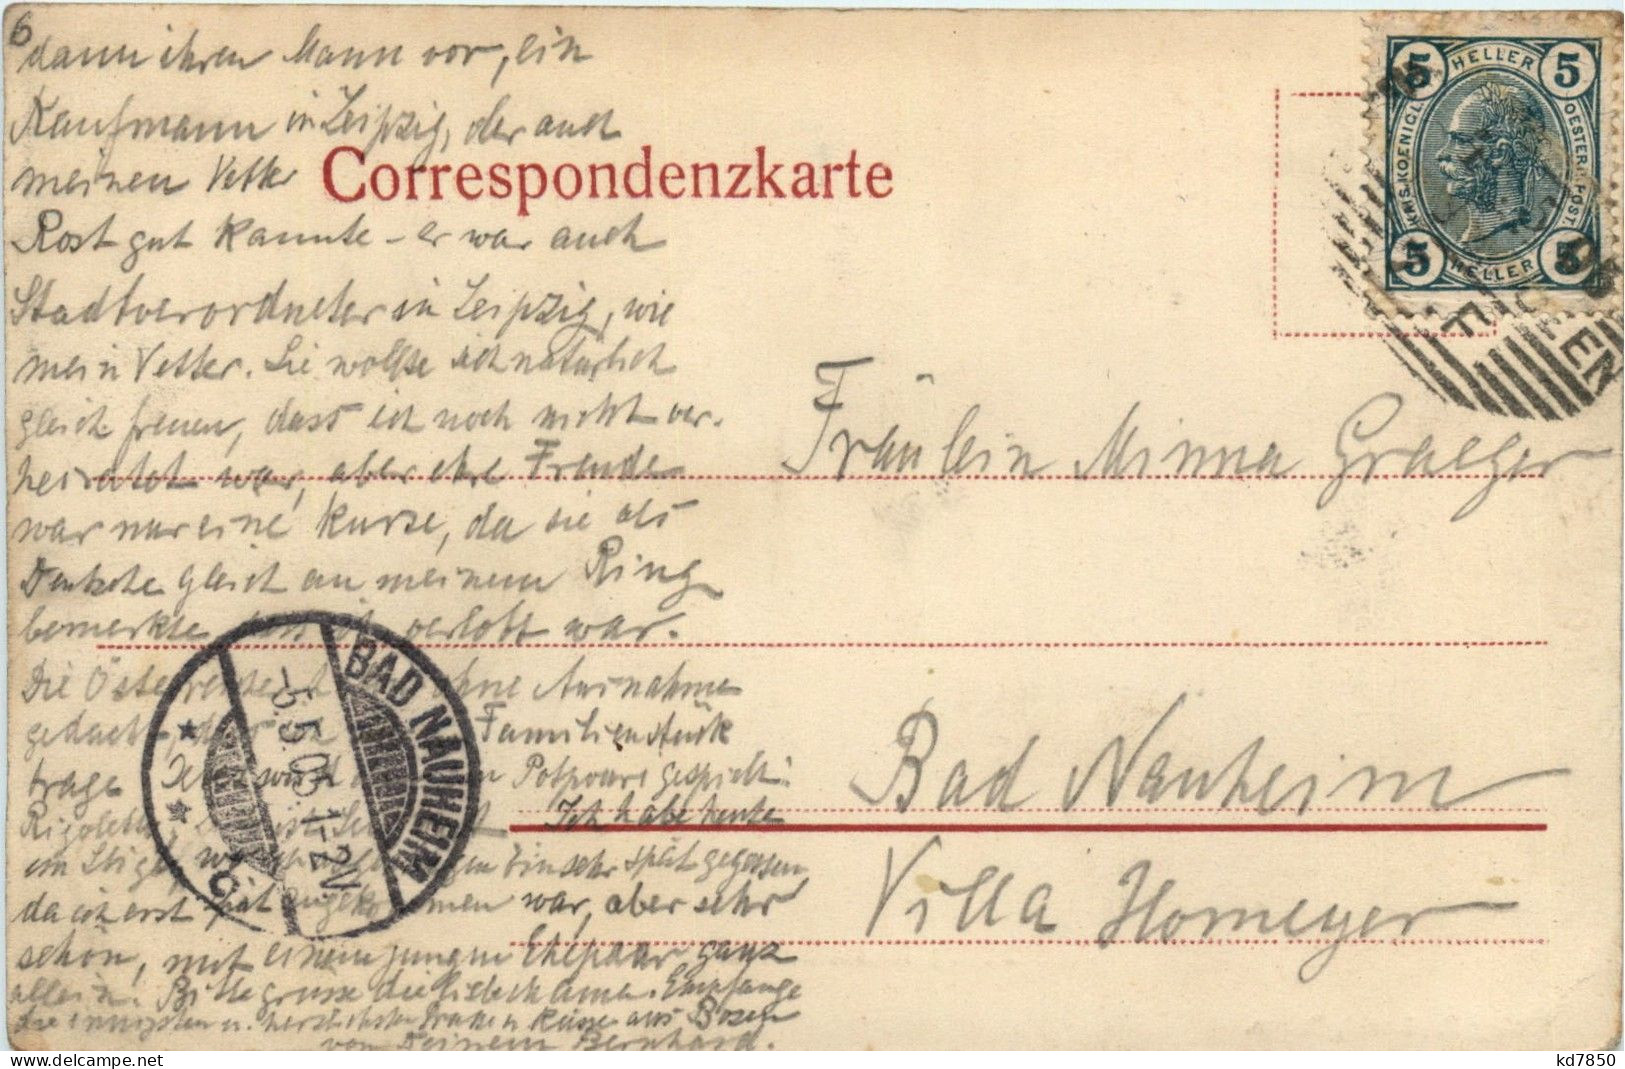 6
dann ihren Mann vor, ein
Kaufmann in Leipzig, der auch
meinen Vetter
Correspondenzkarte
Rost gut kannte - er war auch
Stadtverordneter in Leipzig, wie
mein Vetter. Sie wollte sich natürlich
gleich freuen, dass ich noch nicht ver-
heiratet war, aber ihre Freude
war nur eine kurze, da sie als
Deutsche gleich an meinem Ring
bemerkte dass ich verlobt war.
Die ohne Ausnahme
gedacht, Familienstück
trage wird Potpourri gespielt:
Ich habe heute
sehr spät gegessen
da ich erst spät angekommen war, aber sehr
schön, mit einem jungen Ehepaar ganz
allein. Bitte grüsse Mama. Empfange
die innigsten u. herzlichsten Küsse aus Bozen
von Deinem Bernhard.
5 HELLER 5
KAIS. KOENIGL. OESTERR. POST.
5 HELLER 5
Fräulein Minna Graeger
Bad Nauheim
Villa Homeyer
BAD NAUHEIM
-5.5.05. 1-2N.
* * C
kd7850